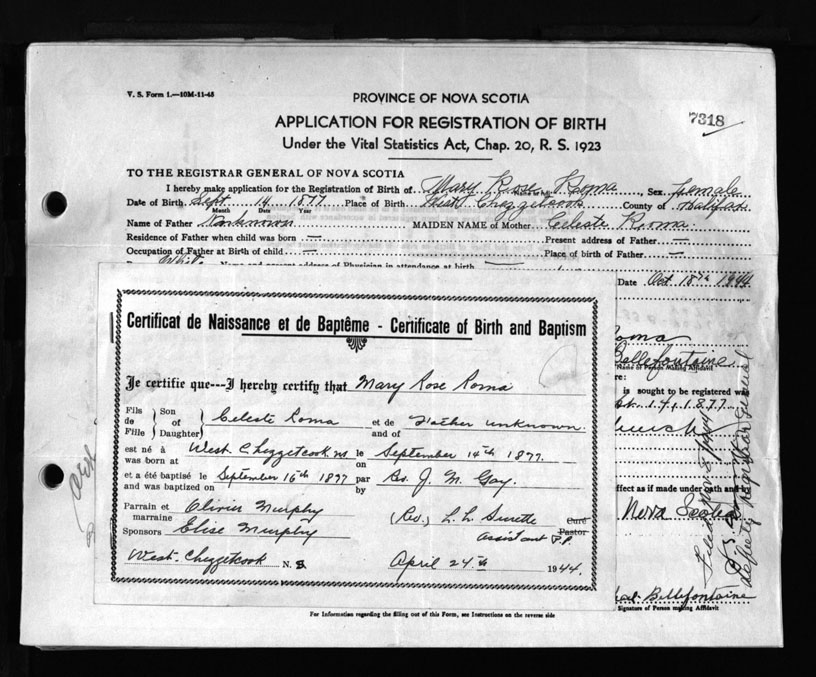 V. S. Form 1.—10M-11-45
PROVINCE OF NOVA SCOTIA
7318
APPLICATION FOR REGISTRATION OF BIRTH
Under the Vital Statistics Act, Chap. 20, R. S. 1923
TO THE REGISTRAR GENERAL OF NOVA SCOTIA
I hereby make application for the Registration of Birth of Mary Rose Roma, Sex Female
Date of Birth Sept 14 1877 Place of Birth West Chezzetcook County of Halifax
Month Date Year
Name of Father Unknown MAIDEN NAME of Mother Celeste Roma
Residence of Father when child was born — Present address of Father —
Occupation of Father at Birth of child — Place of birth of Father —
Name and present address of Physician in attendance at birth —
Date Oct. 18th 1944
Certificat de Naissance et de Baptême - Certificate of Birth and Baptism
Je certifie que---I hereby certify that Mary Rose Roma
Fils de Fille Son of Daughter Celeste Roma et de and of Father unknown.
est né à was born at West Chezzetcook NS le on September 14th 1877.
et a été baptisé le and was baptized on September 16th 1877 par by Rev. J. M. Gay.
Parrain et marraine Sponsors Olivier Murphy
Elise Murphy
(Rev.) L. L. Surette Curé Pastor
assistant P.P.
West-Chezzetcook N. S. April 24th 1944.
Roma
Bellefontaine
Name of Person Making Affidavit
re:
is sought to be registered was
14, 1877
ffect as if made under oath and
Nova Scotia
Bellefontaine
Signature of Person making Affidavit
Deputy Registrar General
For Information regarding the filling out of this Form, see Instructions on the reverse side